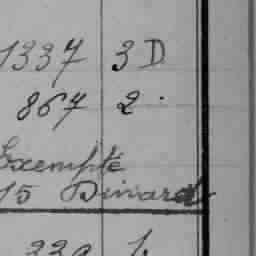 1337 3 D
867 2.
Exempté
15 Dinard
229 1.